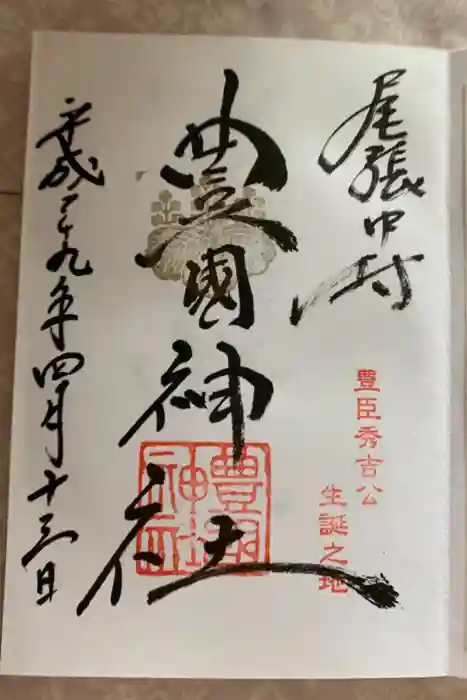 尾張中村
豊臣秀吉公
生誕之地
豊國神社
平成二十九年四月十三日